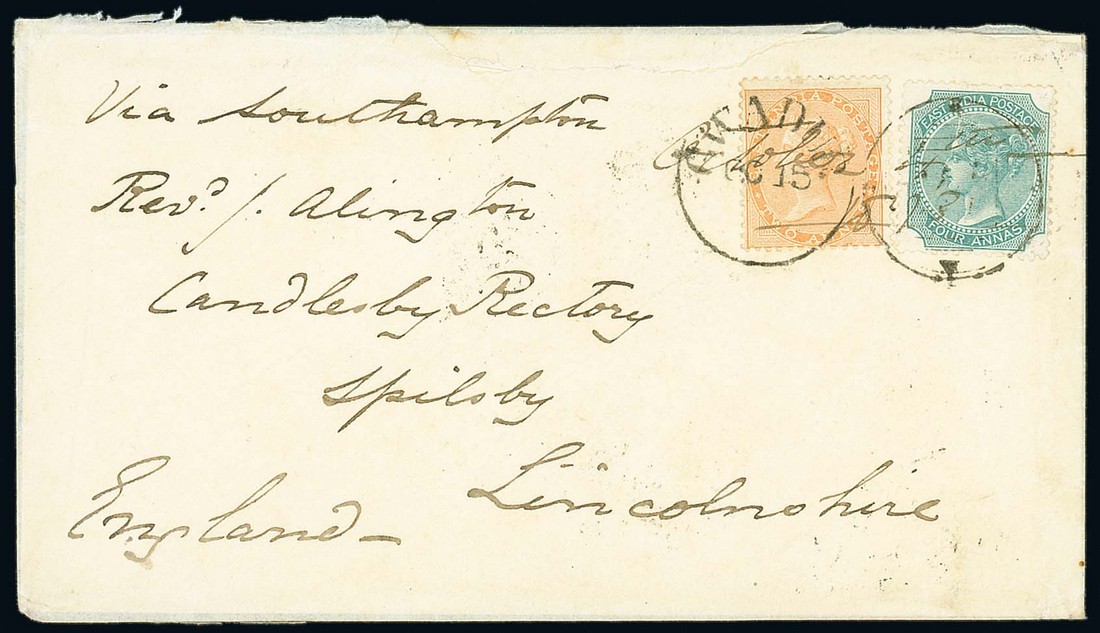 Via Southampton
Revd. J. Alington
Candlesby Rectory
Spilsby
Lincolnshire
England –
INDIA POSTAGE
TWO ANNAS
EAST INDIA POSTAGE
FOUR ANNAS
15